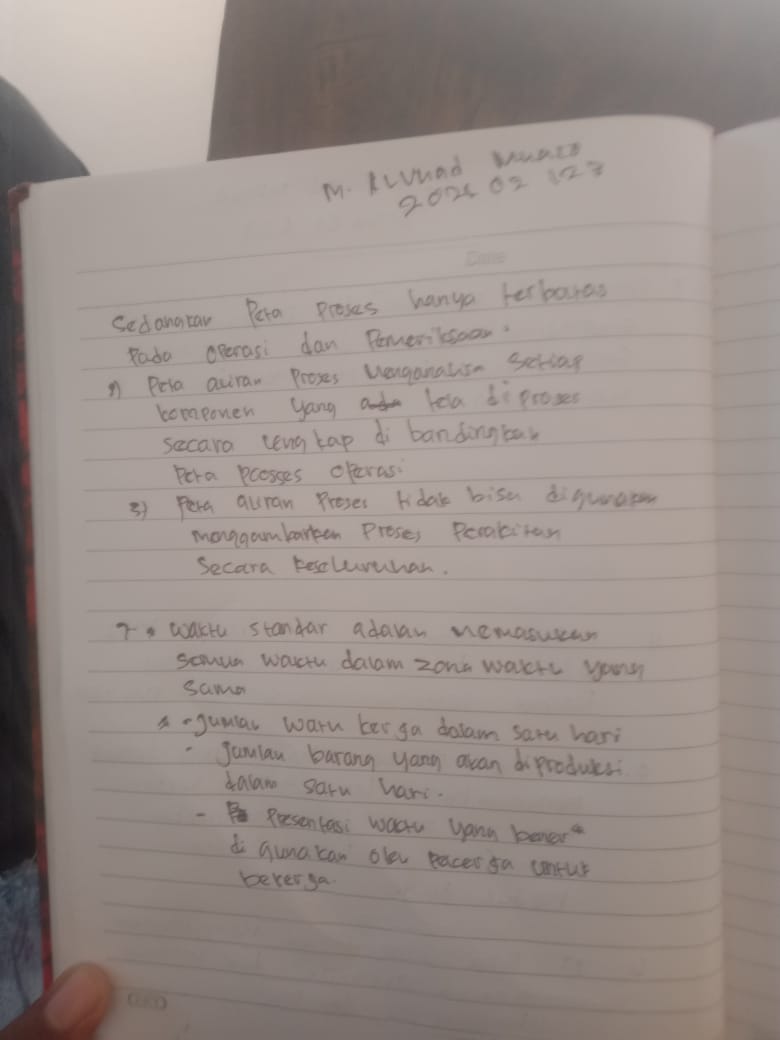 M.
Date
Sedangkan Peta Proses hanya terbatas
Pada operasi dan Pemeriksaan.
Peta aliran Proses Menganalisa Setiap
komponen yang di proses
secara lengkap di bandingkan
Peta Prosges operasi
3) Peta aliran Proses tidak bisa digunakan
menggambarkan Proses Perakitan
Secara keseluruhan.
7. waktu standar adalah memasukan
semua waktu dalam zona waktu yang
sama
- Jumlah watu kerga dalam satu hari
- Jumlah barang yang akan diproduksi
dalam satu hari.
- Presentasi waktu yang benar"
di gunakan oleh untuk
bekerga.